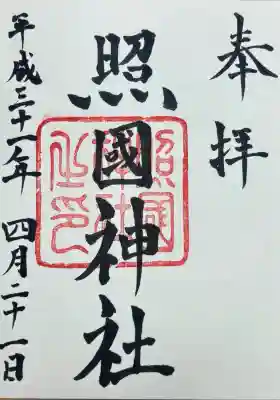 奉拝
照國神社
照國神社之印
平成三十一年 四月二十一日